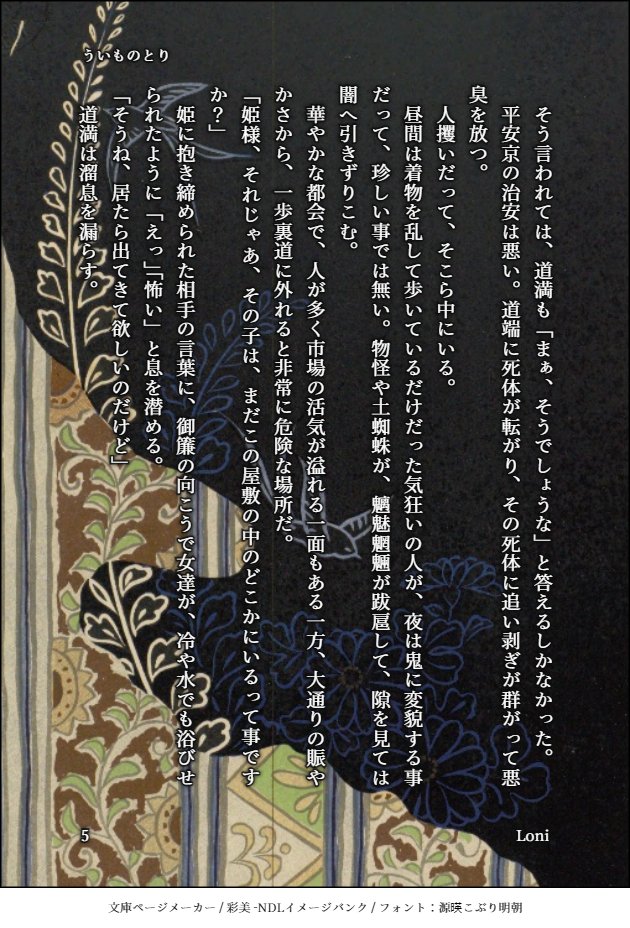 ういものとり
そう言われては、道満も「まぁ、そうでしょうな」と答えるしかなかった。
平安京の治安は悪い。道端に死体が転がり、その死体に追い剥ぎが群がって悪
臭を放つ。
人攫いだって、そこら中にいる。
昼間は着物を乱して歩いているだけだった気狂いの人が、夜は鬼に変貌する事
だって、珍しい事では無い。物怪や土蜘蛛が、魑魅魍魎が跋扈して、隙を見ては
闇へ引きずりこむ。
華やかな都会で、人が多く市場の活気が溢れる一面もある一方、大通りの賑や
かさから、一歩裏道に外れると非常に危険な場所だ。
「姫様、それじゃあ、その子は、まだこの屋敷の中のどこかにいるって事です
か？」
姫に抱き締められた相手の言葉に、御簾の向こうで女達が、冷や水でも浴びせ
られたように「えっ」「怖い」と息を潜める。
「そうね、居たら出てきて欲しいのだけど」
道満は溜息を漏らす。
5
Loni
文庫ページメーカー / 彩美 -NDLイメージバンク / フォント：源暎こぶり明朝